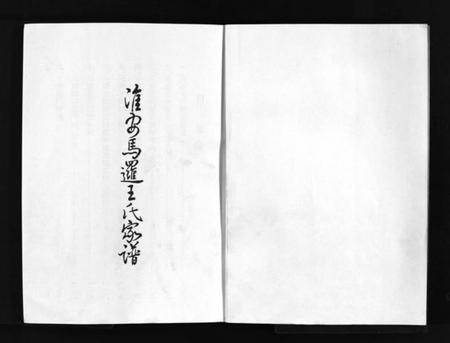 淮安馬邏王氏家譜